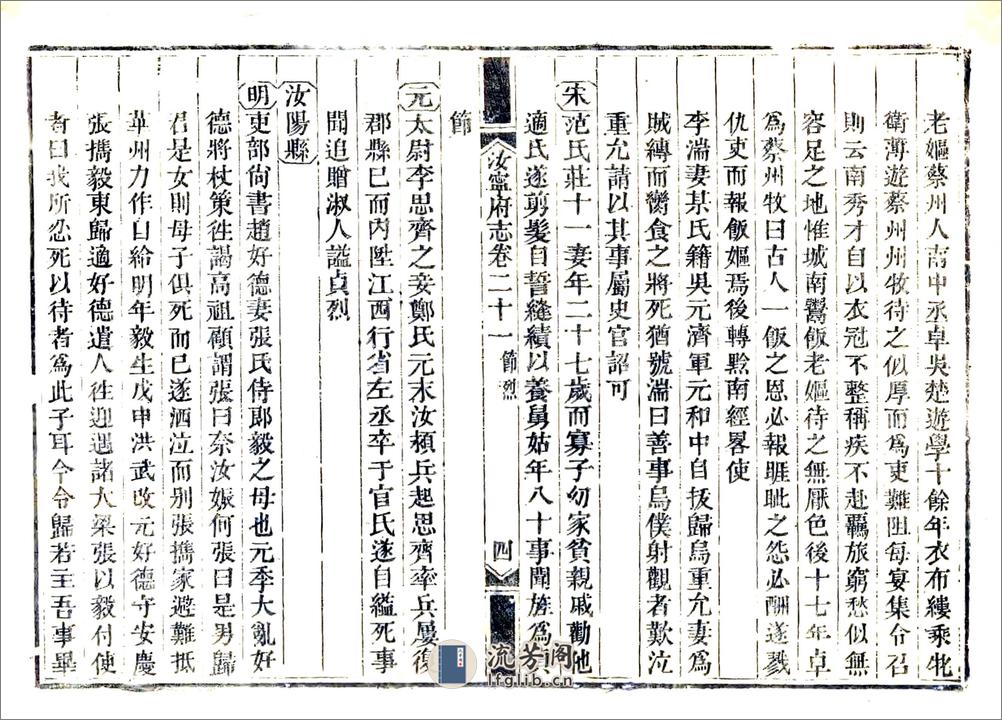 老嫗蔡州人南中丞卓吳楚遊學十餘年衣布縷乘牝
衛薄遊蔡州州牧待之似厚而為吏難阻每宴集令召
則云南秀才自以衣冠不整稱疾不赴羈旅窮愁似無
容足之地惟城南鬻飯老嫗待之無厭色後十七年卓
為蔡州牧曰古人一飯之恩必報睚眦之怨必酬遂戮
仇吏而報飯嫗焉後轉黔南經畧使
李湍妻某氏籍吳元濟軍元和中自拔歸烏重允妻為
賊縛而臠食之將死猶號湍曰善事烏僕射觀者歎泣
重允請以其事屬史官詔可
宋 范氏莊十一妻年二十七歲而寡子幼家貧親戚勸他
適氏遂剪髮自誓縫績以養舅姑年八十事聞旌為
汝寧府志卷二十一 節烈 四
節
元 太尉李思齊之妾鄭氏元末汝頴兵起思齊率兵屢復
郡縣已而內陞江西行省左丞卒于官氏遂自縊死事
聞追贈淑人謚貞烈
汝陽縣
明 吏部尚書趙好德妻張氏侍郎毅之母也元季大亂好
德將杖策往謁高祖顧謂張曰奈汝娠何張曰是男歸
君是女則母子俱死而已遂洒泣而别張攜家避難抵
華州力作日給明年毅生戊申洪武改元好德守安慶
張攜毅東歸適好德遣人往迎遇諸大梁張以毅付使
者曰我所忍死以待者為此子耳今令歸若主吾事畢
流芳阁
lfglib.cn